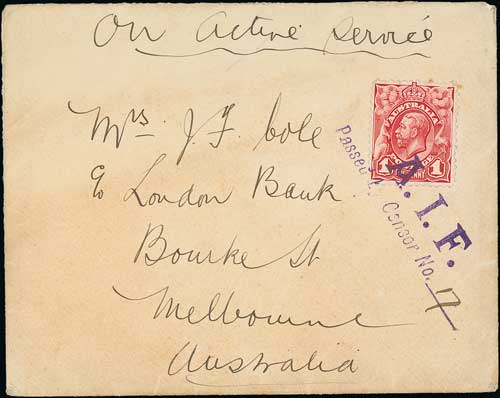 On Active Service
Mrs J. F. Cole
c/o London Bank
Bourke St
Melbourne
Australia
AUSTRALIA
1 PENNY 1
A. I. F.
Passed by Censor No. 17